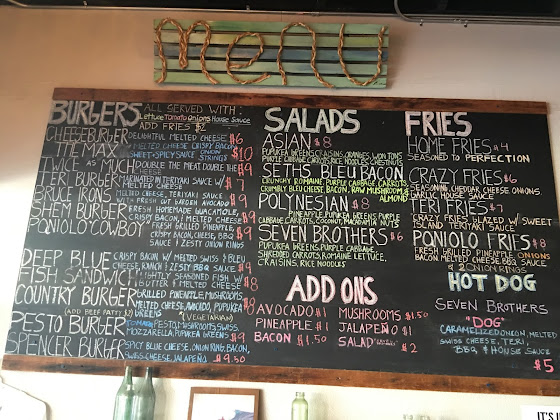 menu
BURGERS
ALL SERVED WITH:
Lettuce Tomato Onions House Sauce
ADD FRIES $2
CHEESEBURGER DELIGHTFUL MELTED CHEESE $6
THE MAX MELTED CHEESE CRISPY BACON,
SWEET + SPICY SAUCE ONION STRINGS $10
TWICE AS MUCH DOUBLE THE MEAT DOUBLE THE CHEESE $9
TERI BURGER MARINATED IN TERIYAKI SAUCE W/ MELTED CHEESE $7
BRUCE IRONS MELTED CHEESE TERIYAKI SAUCE
WITH FRESH CUT GARDEN AVOCADO $9
SHEM BURGER FRESH HOMEMADE GUACAMOLE,
CRISPY BACON, MELTED CHEESE $9
PONIOLO COWBOY FRESH GRILLED PINEAPPLE,
CRISPY BACON, CHEESE, BBQ $9
SAUCE & ZESTY ONION RINGS
DEEP BLUE CRISPY BACON W/ MELTED SWISS & BLEU
CHEESE, RANCH & ZESTY BBQ SAUCE $9
FISH SANDWICH
BUTTER & MELTED CHEESE $8
COUNTRY BURGER GRILLED PINEAPPLE, MUSHROOMS
MELTED CHEESE, AVOCADO, PUPUKEA GREENS $8
(ADD BEEF PATTY $2) (VEGETARIAN)
PESTO BURGER PESTO, MUSHROOMS, SWISS,
MOZZARELLA, PUPUKEA GREENS $9
SPENCER BURGER SPICY BLUE CHEESE, ONION RING, BACON,
SWISS CHEESE, JALAPEÑO $9.50
SALADS
ASIAN $8
PUPUKEA GREENS, CRAISINS, ORANGES, WON TONS
PURPLE CABBAGE, CARROTS, RICE NOODLES, CHESTNUTS
SETH'S BLEU BACON
CRUNCHY ROMAINE, PURPLE CABBAGE, CARROTS,
CRUMBLY BLEU CHEESE, BACON, RAW MUSHROOMS, ALMOND $8
POLYNESIAN $8
PINEAPPLE, PUPUKEA GREENS, PURPLE
CABBAGE, CARROTS, COCONUT, MACADAMIA NUTS
SEVEN BROTHERS $6
PUPUKEA GREENS, PURPLE CABBAGE,
SHREDDED CARROTS, ROMAINE LETTUCE,
CRAISINS, RICE NOODLES
ADD ONS
AVOCADO $1 MUSHROOMS $1.50
PINEAPPLE $1 JALAPEÑO $1
BACON $1.50 SALAD $2
FRIES
HOME FRIES $4
SEASONED TO PERFECTION
CRAZY FRIES $6
SEASONING, CHEDDAR CHEESE, ONIONS,
GARLIC UNCLE SAUCE
TERI FRIES $7
"CRAZY FRIES" GLAZED W/ SWEET
ISLAND TERIYAKI SAUCE
PONIOLO FRIES $8
FRESH GRILLED PINEAPPLE, ONIONS
BACON, MELTED CHEESE, BBQ SAUCE
& 2 ONION RINGS
HOT DOG
SEVEN BROTHERS
"DOG"
CARAMELIZED ONION, MELTED
SWISS CHEESE, TERI,
BBQ & HOUSE SAUCE
$5
IT'S